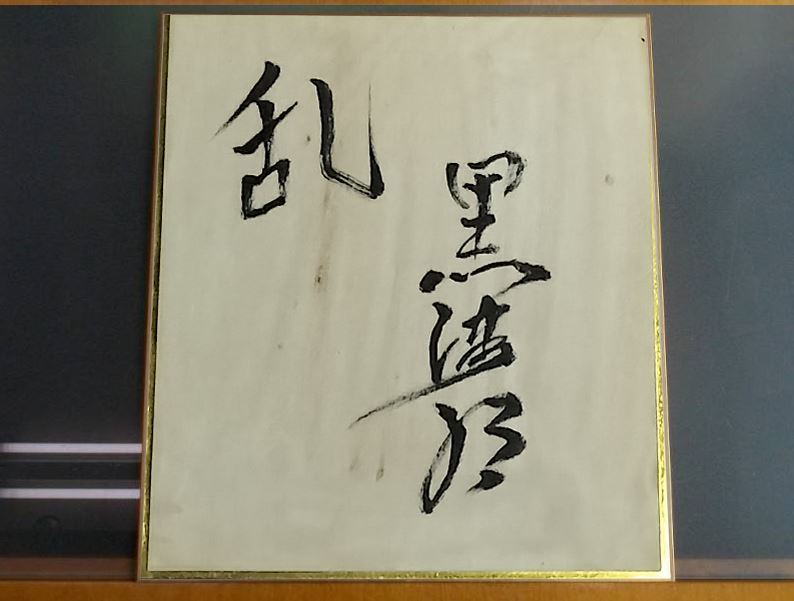 黒澤明
乱